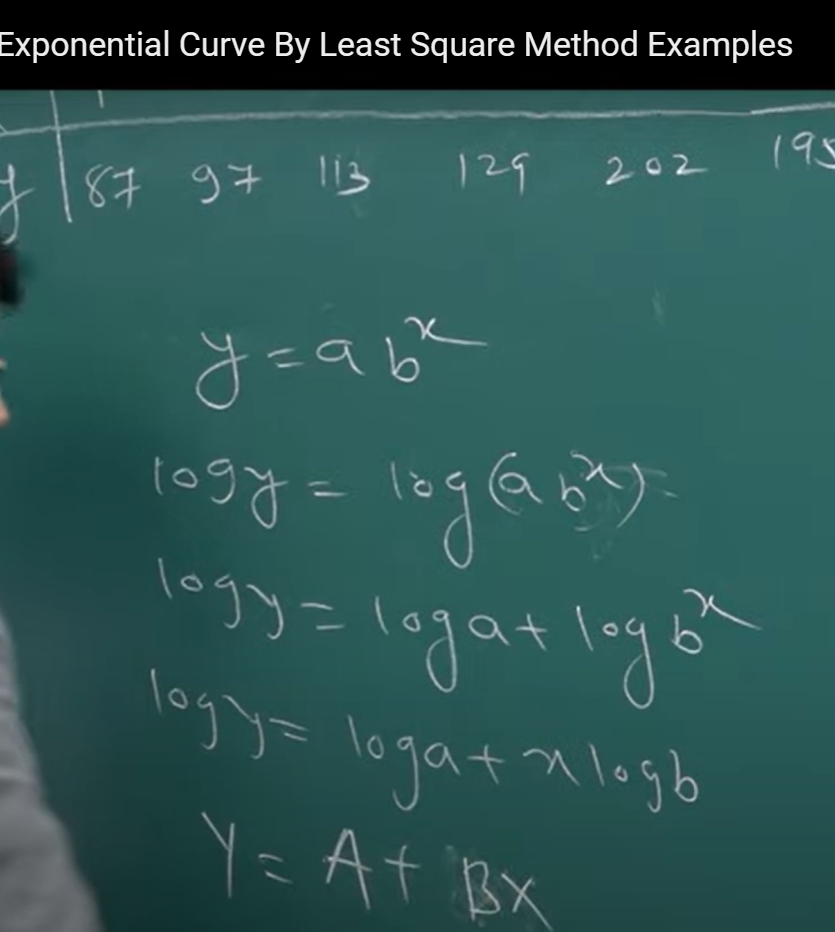 Exponential Curve By Least Square Method Examples
y 87 97 113 129 202 195
y = a b^x
log y = log(a b^x)
log y = log a + log b^x
log y = log a + x log b
Y = A + BX